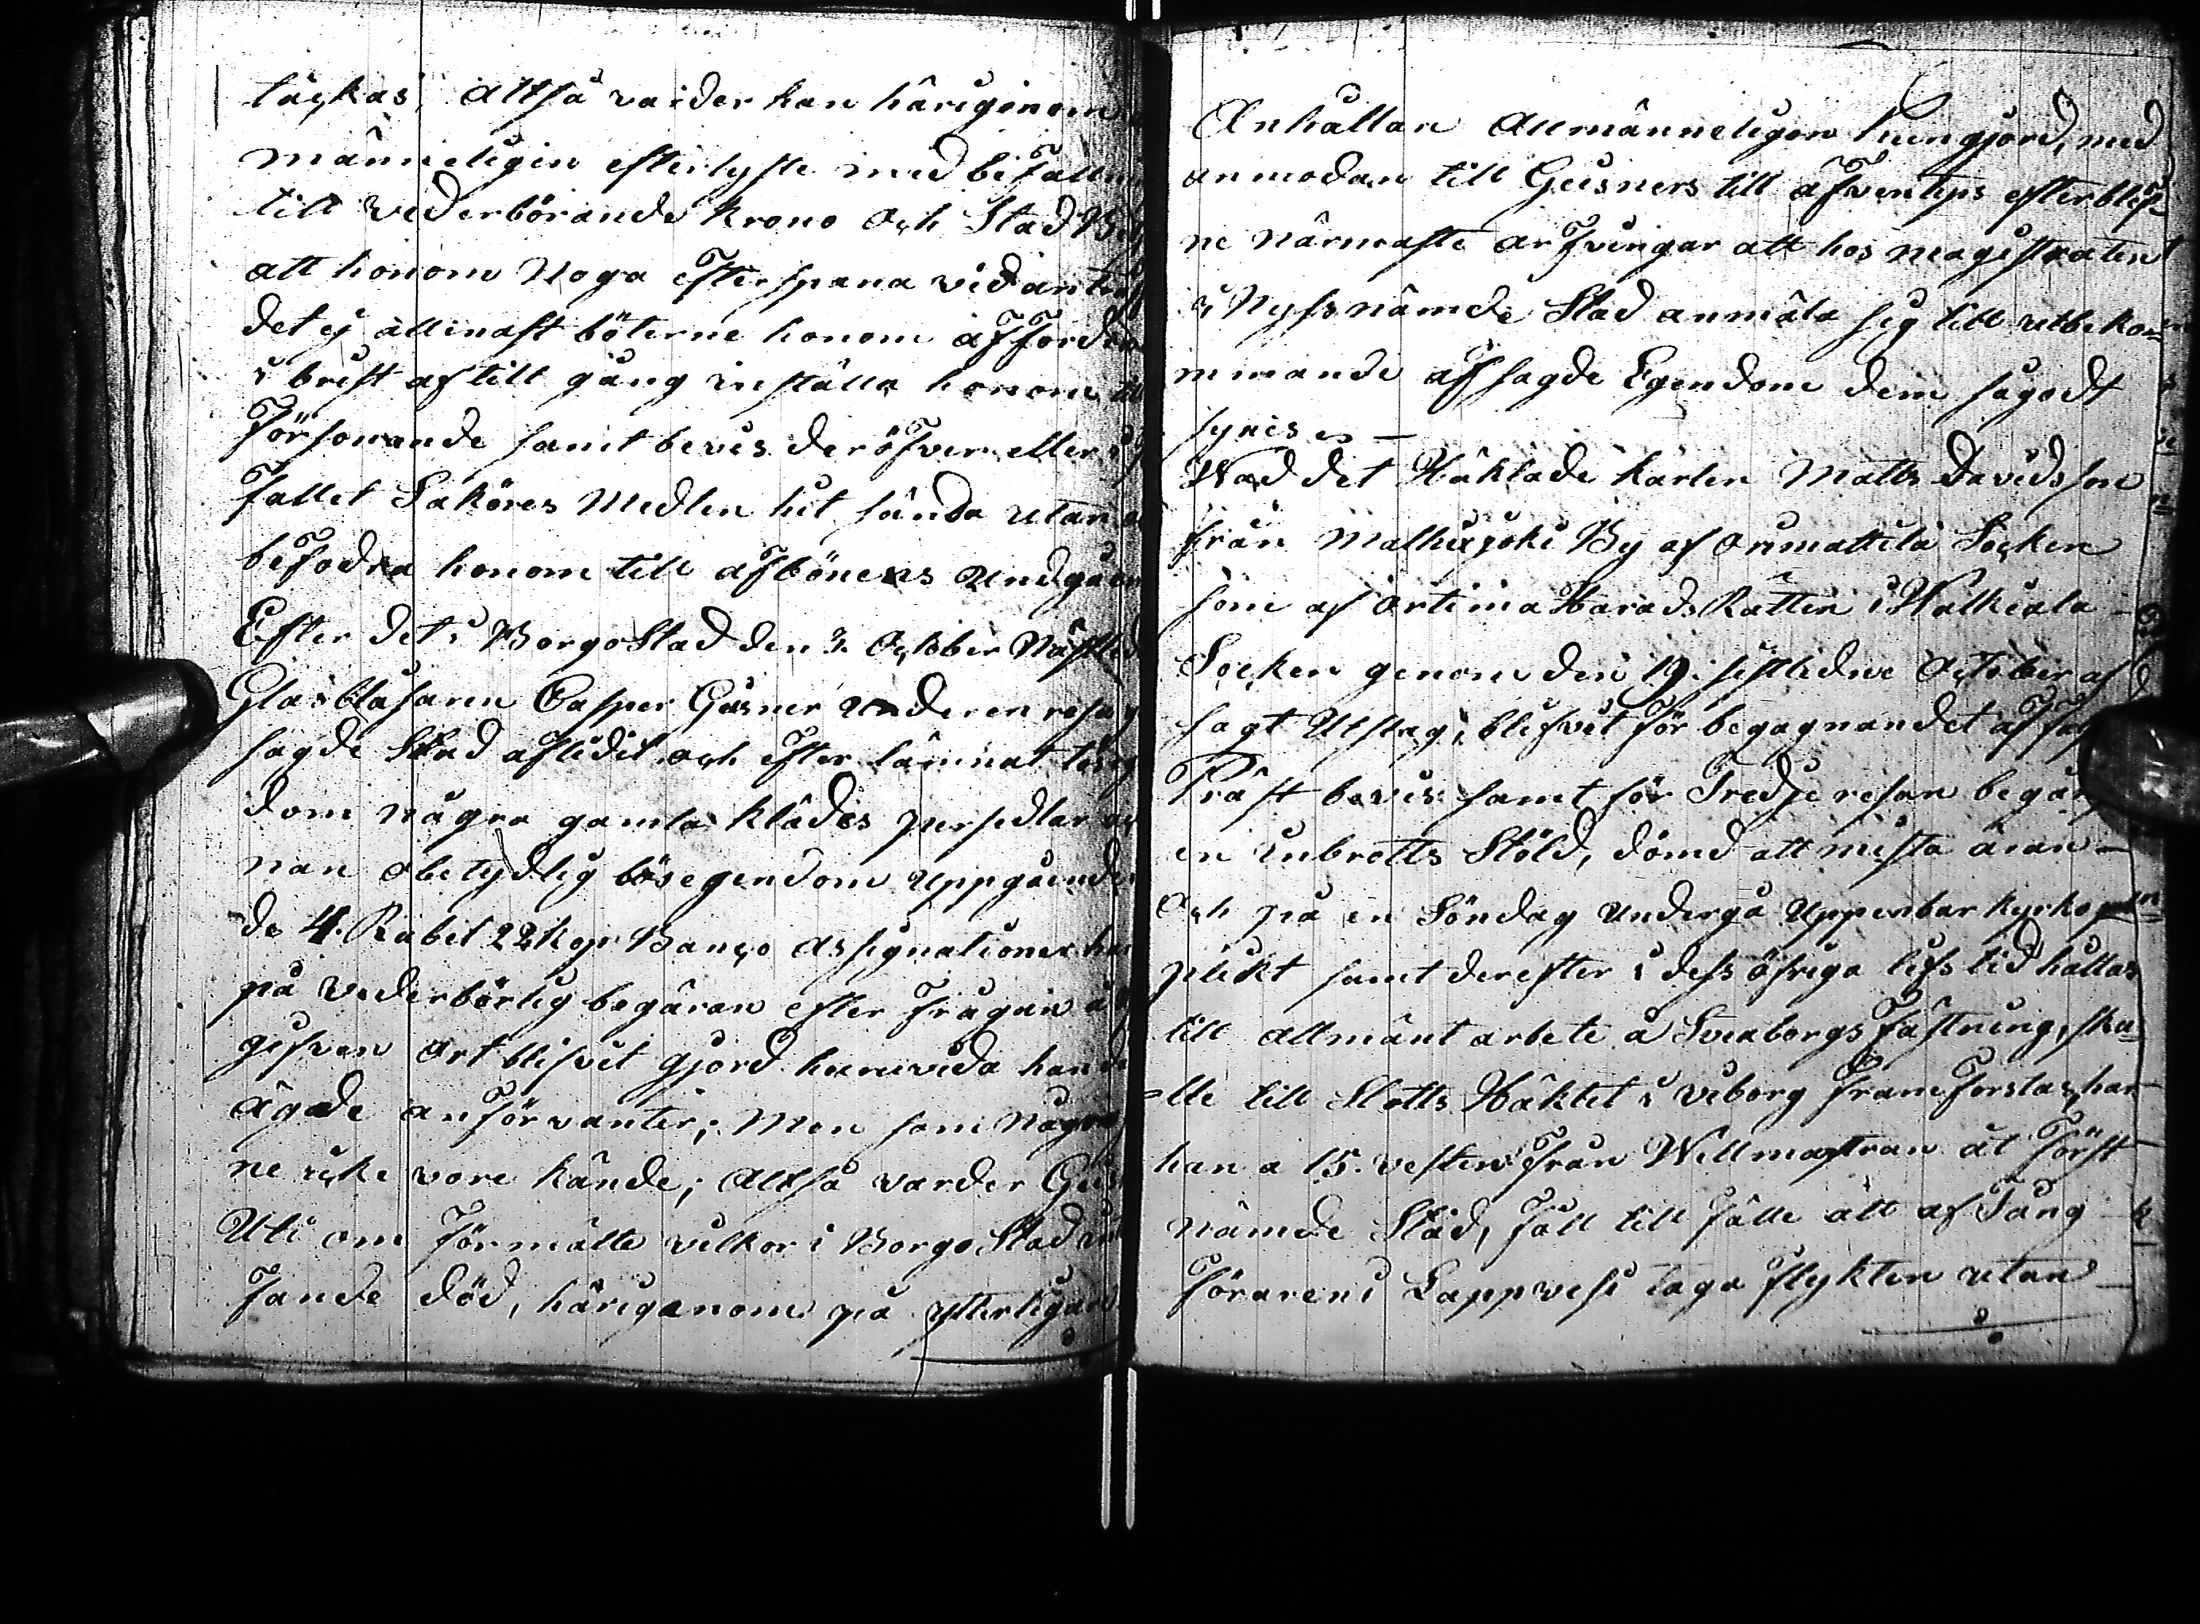 täckas, Altså varder han härigenom
männeligin efterlyste med befalln
till vederbörande krono Och Stads
att honom Noga efterspana vid anträf
det ej allenast böterne honom affordra
i brist af till gång inställa honom til
försonande samt bevis deröfver eller
fallet Saköres Medlen hit sända utan
befodra honom till afbönens Undgåen
Efter det i Borgo Stad den 3. October Nästled
Glasblåsaren Casper Geisner Under en resa
sagde Stad aflidit och efter lämnat löseg
dom några gamla klädes persedlar
nan obetydlig lösegendom Uppgående
de 4. Rubel 22 kop Banco Assignationer
på Vederbörlig begäran efter frågan
gifven Ort blifvit gjord hurruvida han
ägde anförvanter; Men som Någre
ne icke vore kände; Altså varder Geis
Uti om förmälte vilkor i Borgo Stad
fande död, härigenom på ytterligare
Anhållan Allmänneligen kungjord, med
anmodan till Geisners till äfventyrs efterblef
ne närmaste arfvingar att hos magistraten
i Nyssnämde Stad anmäla sig till utbeko=
mmande af sagde Egendom dem sågodt
synes
Wad det Häktade karlen Matts Davidsson
från Mathujoki By af Orimattila Socken
som af Ortima Härads Rätten i Walkiala
Socken genom den 19. sistledne October af
sagt Utslag, blifvit för begagnandet af
Präst bevis samt för Tredje resan begån
en Inbrotts Stöld, dömd att mista äran
Och på en Söndag Undergå Uppenbar kyrko
plikt samt derefter i dess öfriga lifs tid hållas
till Allmänt arbete å Sveaborgs Fästning, sku=
lle till Slotts Häktet i Viborg framforslas, har
han a 15. versten från Willmanstran åt först
nämde Stad, fått till fälle att af Fång
föraren i Lappvesi taga flykten utan